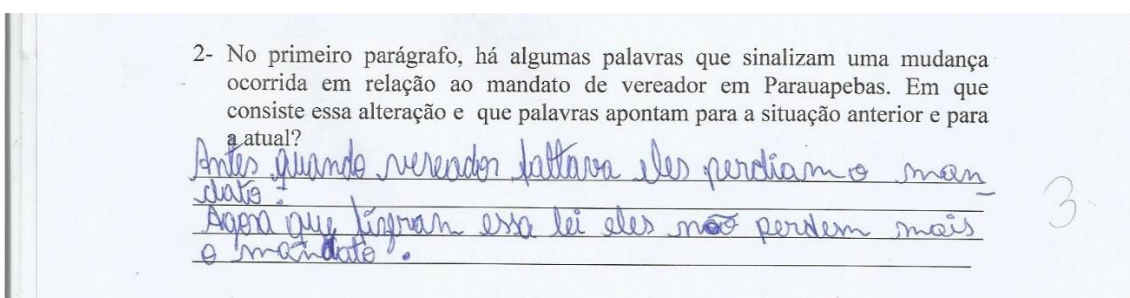 2- No primeiro parágrafo, há algumas palavras que sinalizam uma mudança
ocorrida em relação ao mandato de vereador em Parauapebas. Em que
consiste essa alteração e que palavras apontam para a situação anterior e para
a atual?
Antes quando vereador faltava eles perdiam o man
dato.
Agora que essa lei eles não perdem mais
o mandato.
3